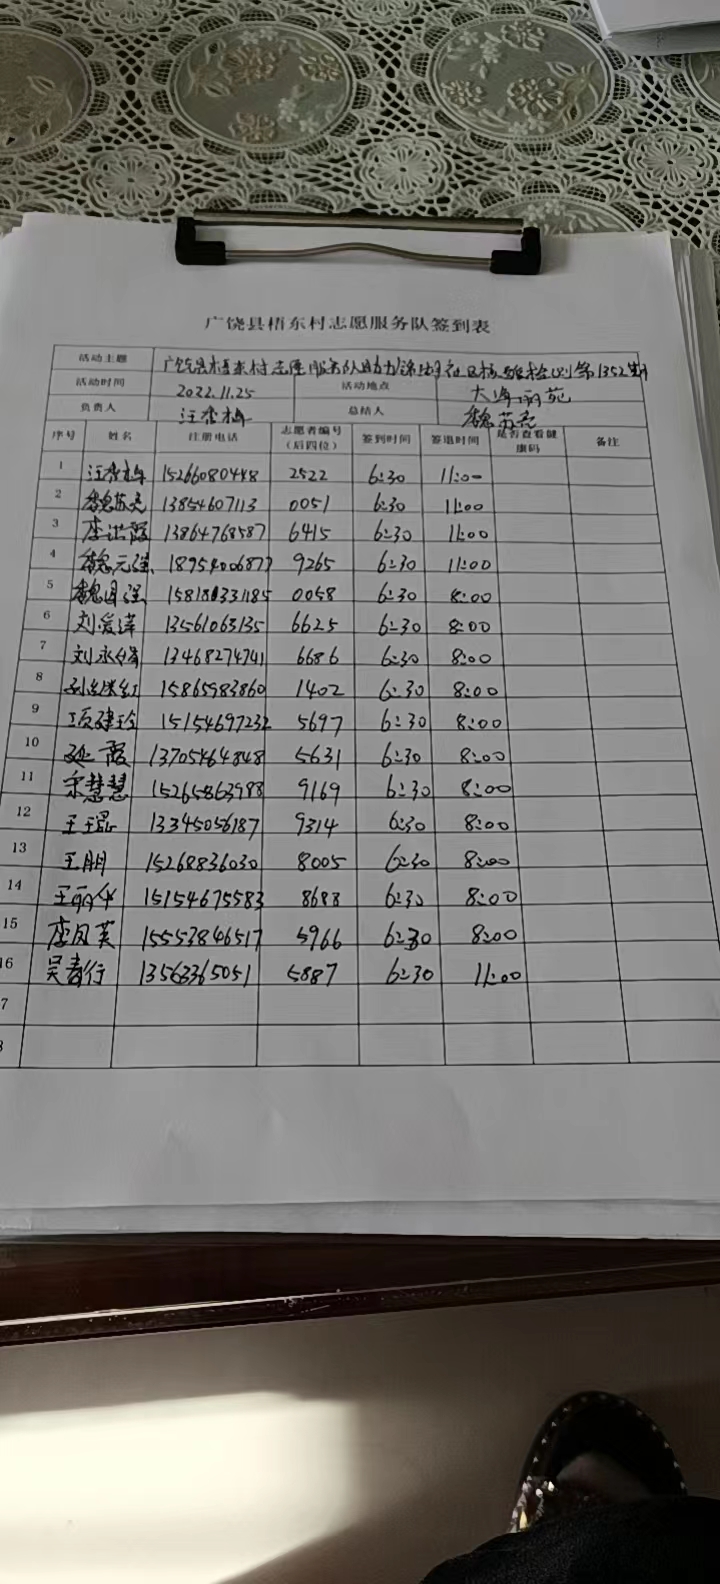 广饶县梧东村志愿服务队签到表
活动主题 广饶县梧东村志愿服务队助力锦湖社区核酸检测第1352期
活动时间 2022.11.25 活动地点 大海丽苑
负责人 汪香梅 总结人 魏苏亮
序号 姓名 注册电话 志愿者编号（后四位） 签到时间 签退时间 是否查看健康码 备注
1 汪香梅 15266080448 2522 6:30 11:00
2 魏苏亮 13854607113 0051 6:30 11:00
3 李洪霞 13864768587 6415 6:30 11:00
4 魏元强 18954006877 9265 6:30 11:00
5 魏国强 0058 6:30 8:00
6 刘爱萍 13561063135 6625 6:30 8:00
7 刘永 13468274741 6686 6:30 8:00
8 孙 红 15865983860 1402 6:30 8:00
9 项建玲 15154697232 5697 6:30 8:00
10 延霞 13705464848 5631 6:30 8:00
11 宋慧慧 15265863988 9169 6:30 8:00
12 王 13345056187 9314 6:30 8:00
13 王朋 15268836030 8005 6:30 8:00
14 王丽华 15154675583 8688 6:30 8:00
15 李凤英 15553846517 5966 6:30 8:00
16 吴春行 13563365051 5887 6:30 11:00
7
8